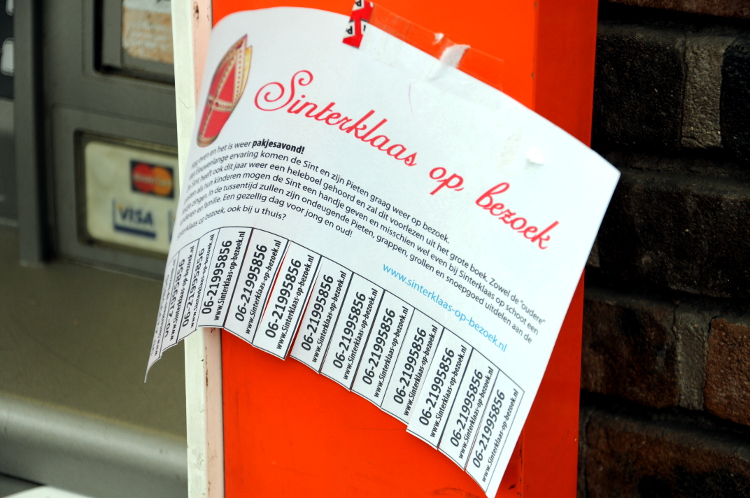 MasterCard
VISA
Sinterklaas op bezoek
even en het is weer pakjesavond!
Eeuwenlange ervaring komen de Sint en zijn Pieten graag weer op bezoek.
Sint heeft ook dit jaar weer een heleboel gehoord en zal dit voorlezen uit het grote boek. Zowel de "oudere"
als hun kinderen mogen de Sint een handje geven en misschien wel even bij Sinterklaas op schoot een
zingen. In de tussentijd zullen zijn ondeugende Pieten, grappen, grollen en snoepgoed uitdelen aan de
kinderen en familie. Een gezellig dag voor jong en oud!
Sinterklaas op bezoek, ook bij u thuis?
www.sinterklaas-op-bezoek.nl
06-21995856
www.Sinterklaas-op-bezoek.nl
06-21995856
www.Sinterklaas-op-bezoek.nl
06-21995856
www.Sinterklaas-op-bezoek.nl
06-21995856
www.Sinterklaas-op-bezoek.nl
06-21995856
www.Sinterklaas-op-bezoek.nl
06-21995856
www.Sinterklaas-op-bezoek.nl
06-21995856
www.Sinterklaas-op-bezoek.nl
06-21995856
www.Sinterklaas-op-bezoek.nl
06-21995856
www.Sinterklaas-op-bezoek.nl
06-21995856
www.Sinterklaas-op-bezoek.nl